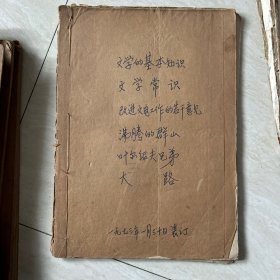 文学的基本知识
文学常识
改进文艺工作的若干意见
沸腾的群山
叶尔绍夫兄弟
大路
一九七三年一月三十日装订